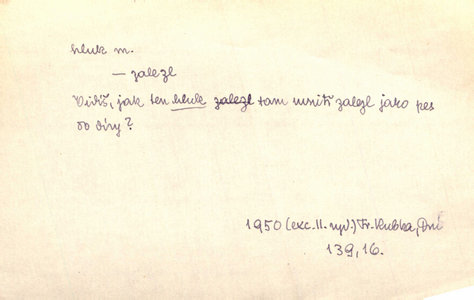 hluk m.
— zalezl
Vidíš, jak ten hluk zalezl tam uvnitř zalezl jako pes
do díry?
1950 (exc. II. vyd.) Fr. Kubka, Dni
139, 16.